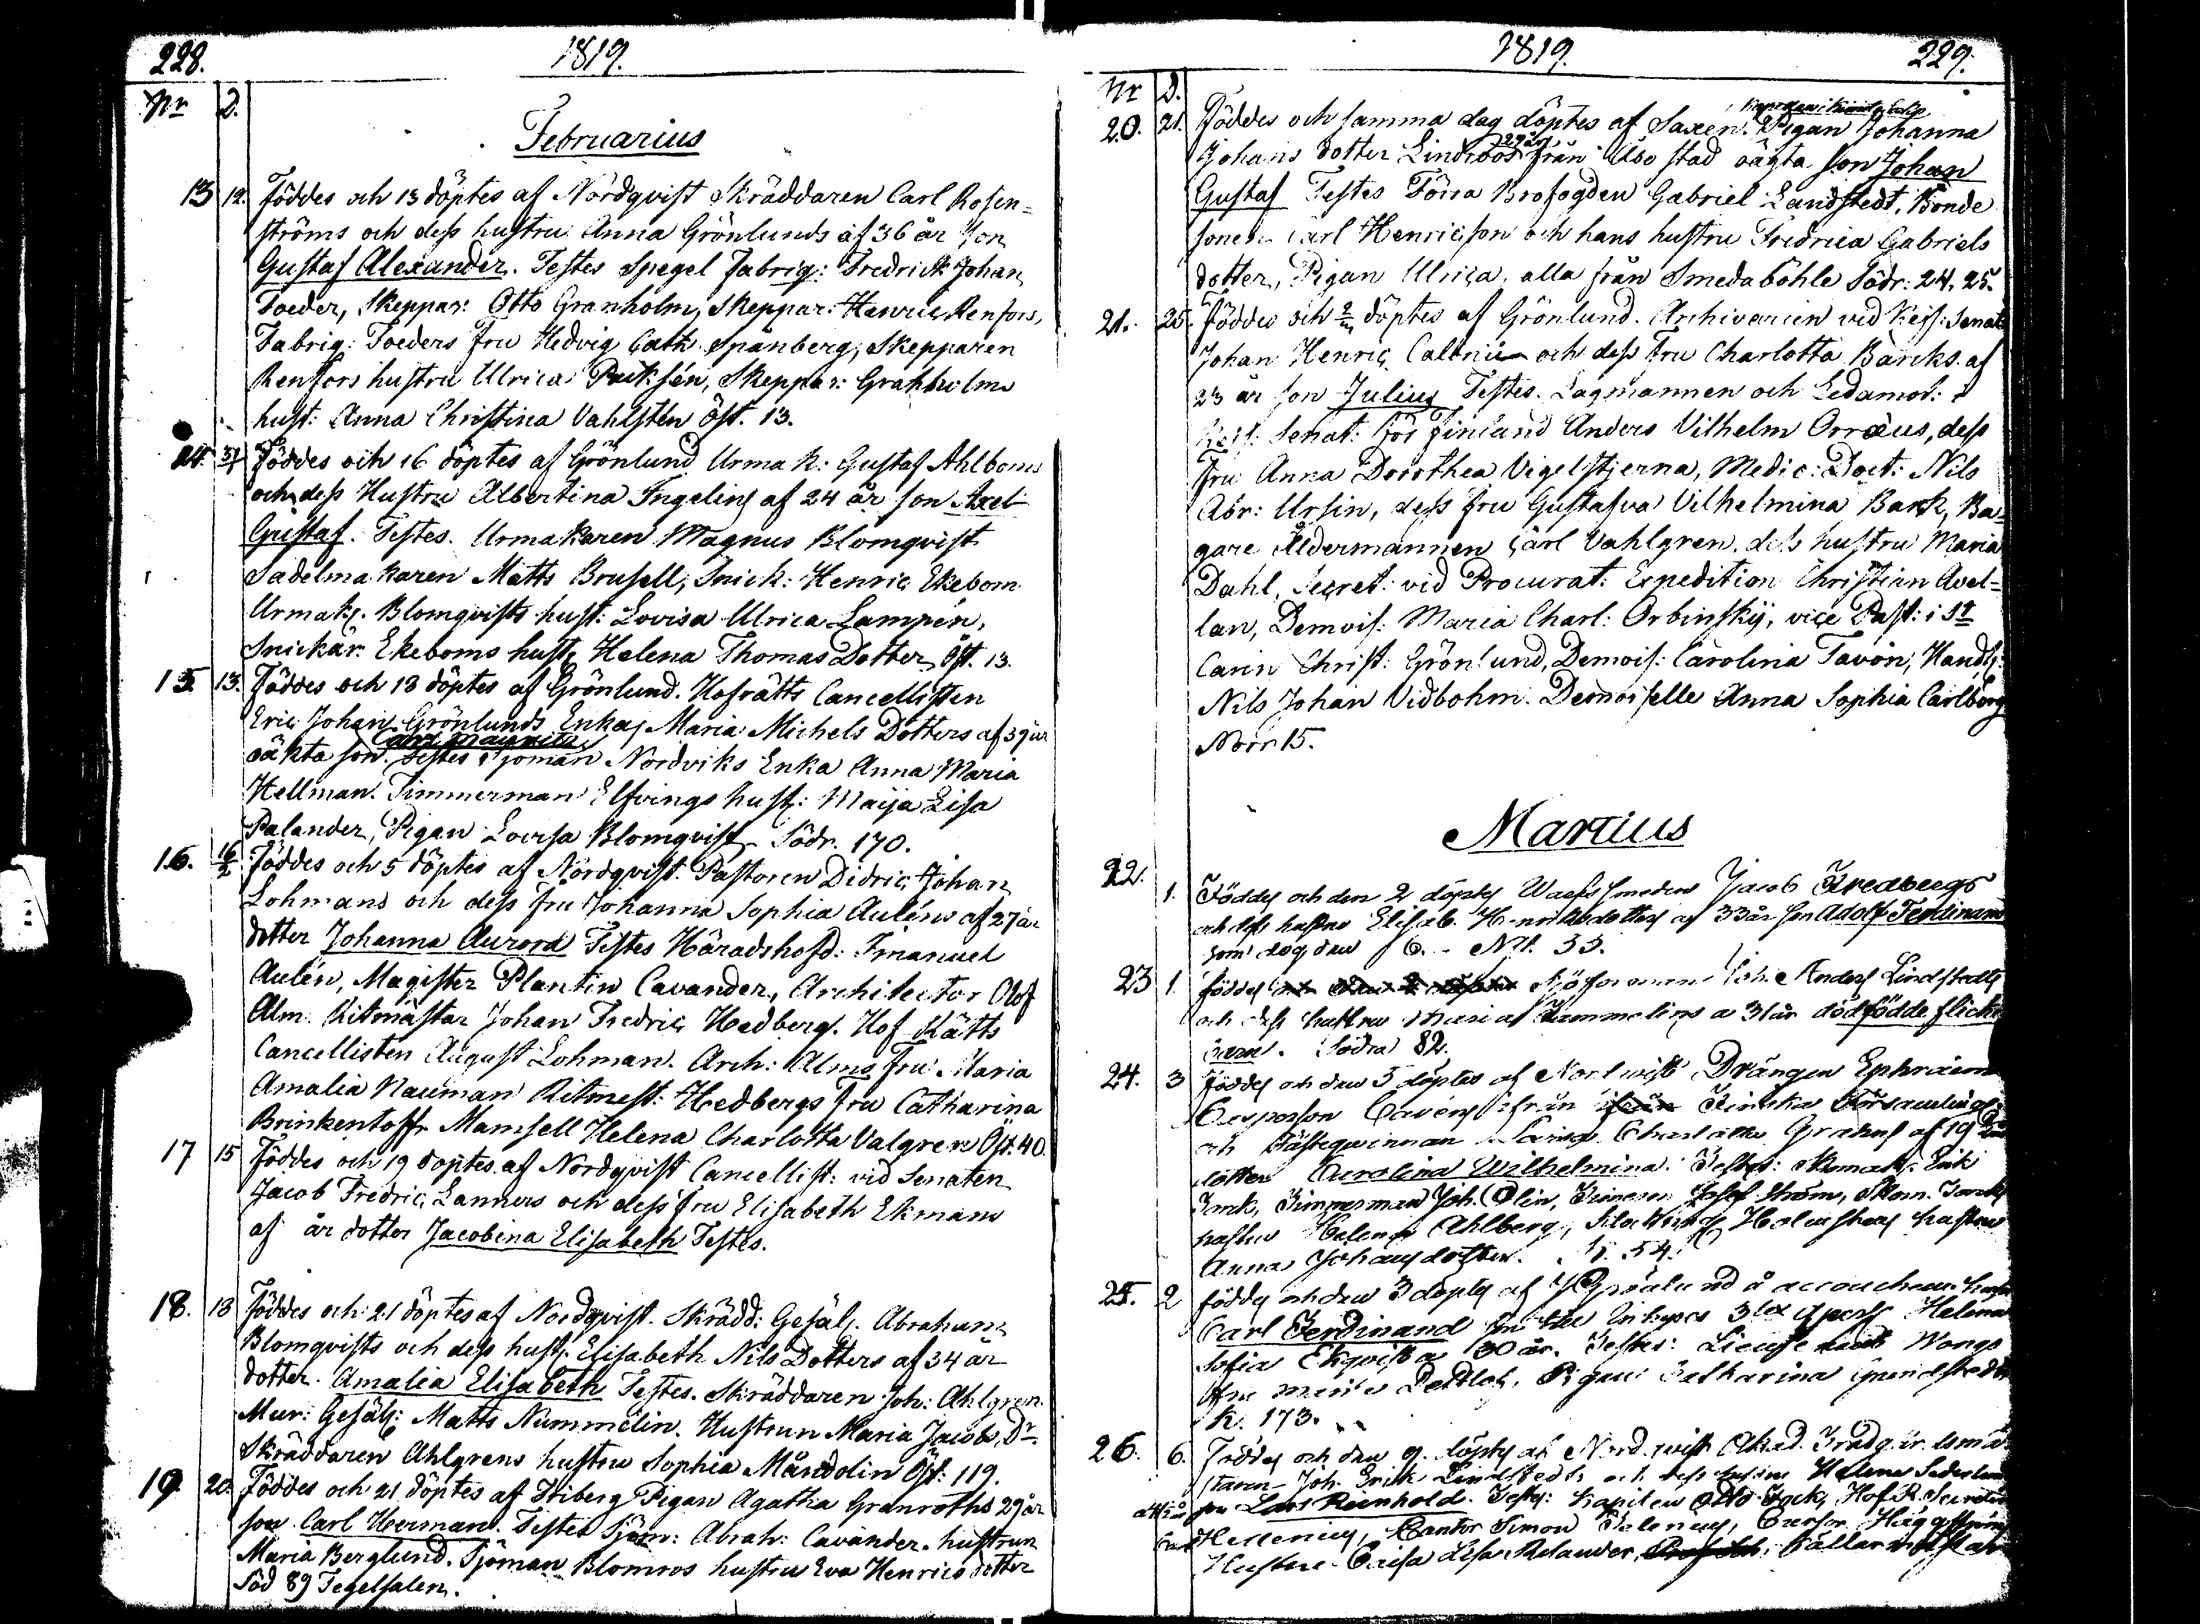 228.
1819.
Nr D.
Februarius
13 12. Föddes och 13 döptes af Nordqvist Skräddaren Carl Rosen-
ströms och dess hustru Anna Grönlunds af 36 år son
Gustaf Alexander. Testes Spegel fabriq: Fredrick Johan
Toeder, Skeppar: Otto Granholm, Skeppar: Henric Renfors,
Fabriq: Toeders fru Hedvig Cath. Spanberg, Skepparen
Renfors hustru Ulrica, Skeppar: Granholms
hust: Anna Christina Vahlsten Öst. 13.
Föddes och 16 döptes af Grönlund Urmak: Gustaf Ahlboms
och dess Hustru Albertina Ingelins af 24 år son Axel
Gustaf. Testes. Urmakaren Magnus Blomqvist
Sadelmakaren Matts Brusell, Snick: Henric Ekebom
Urmak: Blomqvists hust: Lovisa Ulrica Lampén,
Snickar: Ekeboms hust: Helena Thomas Dotter, Öst. 13.
15. 13. Föddes och 18 döptes af Grönlund. Hofrätts Cancellisten
Eric Johan Grönlunds Enkas Maria Michels Dotters af 39 år
Carl Magnus
oäkta son. Testes Sjöman Nordviks Enka Anna Maria
Hellman. Timmerman Elfvings hust: Maija Lisa
Palander, Pigan Lovisa Blomqvist Södr. 170.
16. 16/2 Föddes och 5 döptes af Nordqvist. Pastoren Didric Johan
Lohmans och dess fru Johanna Sophia Auléns af 27 år
dotter Johanna Aurora Testes Häradshöfd: Imanuel
Aulén, Magister Plantin Cavander, Architector Olof
Alm. Ritmästar Johan Fredric Hedberg. Hof Rätts
Cancellisten August Lohman. Arch: Alms fru Maria
Amalia Nauman Ritmest: Hedbergs fru Catharina
Brinkentoff Mamsell Helena Charlotta Valgren Öst. 40.
17 15 Föddes och 19 döptes af Nordqvist Cancellist: vid Senaten
Jacob Fredric Lanners och dess fru Elisabeth Ekmans
af år dotter Jacobina Elisabeth Testes.
18. 18 Föddes och 21 döptes af Nordqvist. Skrädd: Gesäls. Abraham
Blomqvists och dess hust: Elisabeth Nils Dotters af 34 år
dotter. Amalia Elisabeth Testes. Skräddaren Joh: Ahlgren
Mur: Gesäls: Matts Nummelin. Hustrun Maria Jacobs Dr
Skräddaren Ahlgrens hustru Sophia Månddolin Öst: 119.
19. 20. Föddes och 21 döptes af Stiberg Pigan Agatha Granroths 29 år
son Carl Herman. Testes Sjöm: Abrah: Cavander. hustrun
Maria Berglund. Sjöman Blomros hustru Eva Henrics dotter
Söd 89 Tegelsalen.
1819.
229.
Nr D.
20. 21. Föddes och samma dag döptes af Saxén. Pigan Johanna
29 år
Johans dotter Lindroos från Åbo stad oägta son Johan
Gustaf Testes Förra Brofogden Gabriel Landstedt, Bonde
sonen Carl Henricsson och hans hustru Fredrica Gabriels
dotter, Pigan Ulrica, alla från Smedaböhle Södr: 24. 25.
21. 25. Föddes och döptes af Grönlund. Archivarien vid Kejs: Senat
Johan Henric och dess fru Charlotta Barcks af
23 år son Julius Testes. Lagmannen och Ledamot: i
Kejs: Senat: för Finland Anders Vilhelm Orræus, dess
fru Anna Dorothea Vigelstjerna, Medic: Doct: Nils
Abr: Ursin, dess fru Gustafva Vilhelmina Bark, Ba-
gare Åldermannen Carl Vahlgren, dess hustru Maria
Dahl, Secret: vid Procurat: Expedition Christian Avel-
lan, Demois: Maria Charl: Orbinsky, vice Past: i St
Carin Christ: Grönlund, Demois: Carolina Tavon, Handls:
Nils Johan Vidbohm. Demoiselle Anna Sophia Carlborg
Norr 15.
Martius
22. 1. Föddes och den 2 döptes smeden Jacob Kredbergs
och dess hustru Elisab. Henriksdotters af 33 år son Adolf Ferdinand
som dog den 6. N. 55.
23 1. föddes Joh. Anders Lindstedts
och dess hustru Marias Nummelins a 31 år dödfödde flicke
barn. Södra 82.
24. 3 föddes och den 5 döptes af Nordqvist Drängen Ephraim
Casparsson från Finska Församlinge
och Fästeqwinnan Lovisa Charlotta Grahns af 19 år
dotter Carolina Wilhelmina. Testes: Skomak. Erik
Timmerman Joh. Olin, Josef Ström, Skom.
hustru Helena Ahlberg, hustru
Anna Johansdotter. N. 54.
25. 2 föddes och den 3 döptes af Grönlund å accouchem: huset
Carl Ferdinand Helena
Sofia Ekqvist a 30 år. Testes: Lieutenant Wongs
fru Maria, Pigan Catharina Grundstedt
K. 173.
26. 6. Föddes och den 9. döptes af Nordqvist Akad. Trädgårdsmä-
staren Joh. Erik Lindstedts och dess hustru Helena
son Lars Reinhold. Testes: Kapiten Otto, Hof R. Secret
Hellenius, Cantor Simon
Hustru Caisa Lisa Relander, Källarmästar